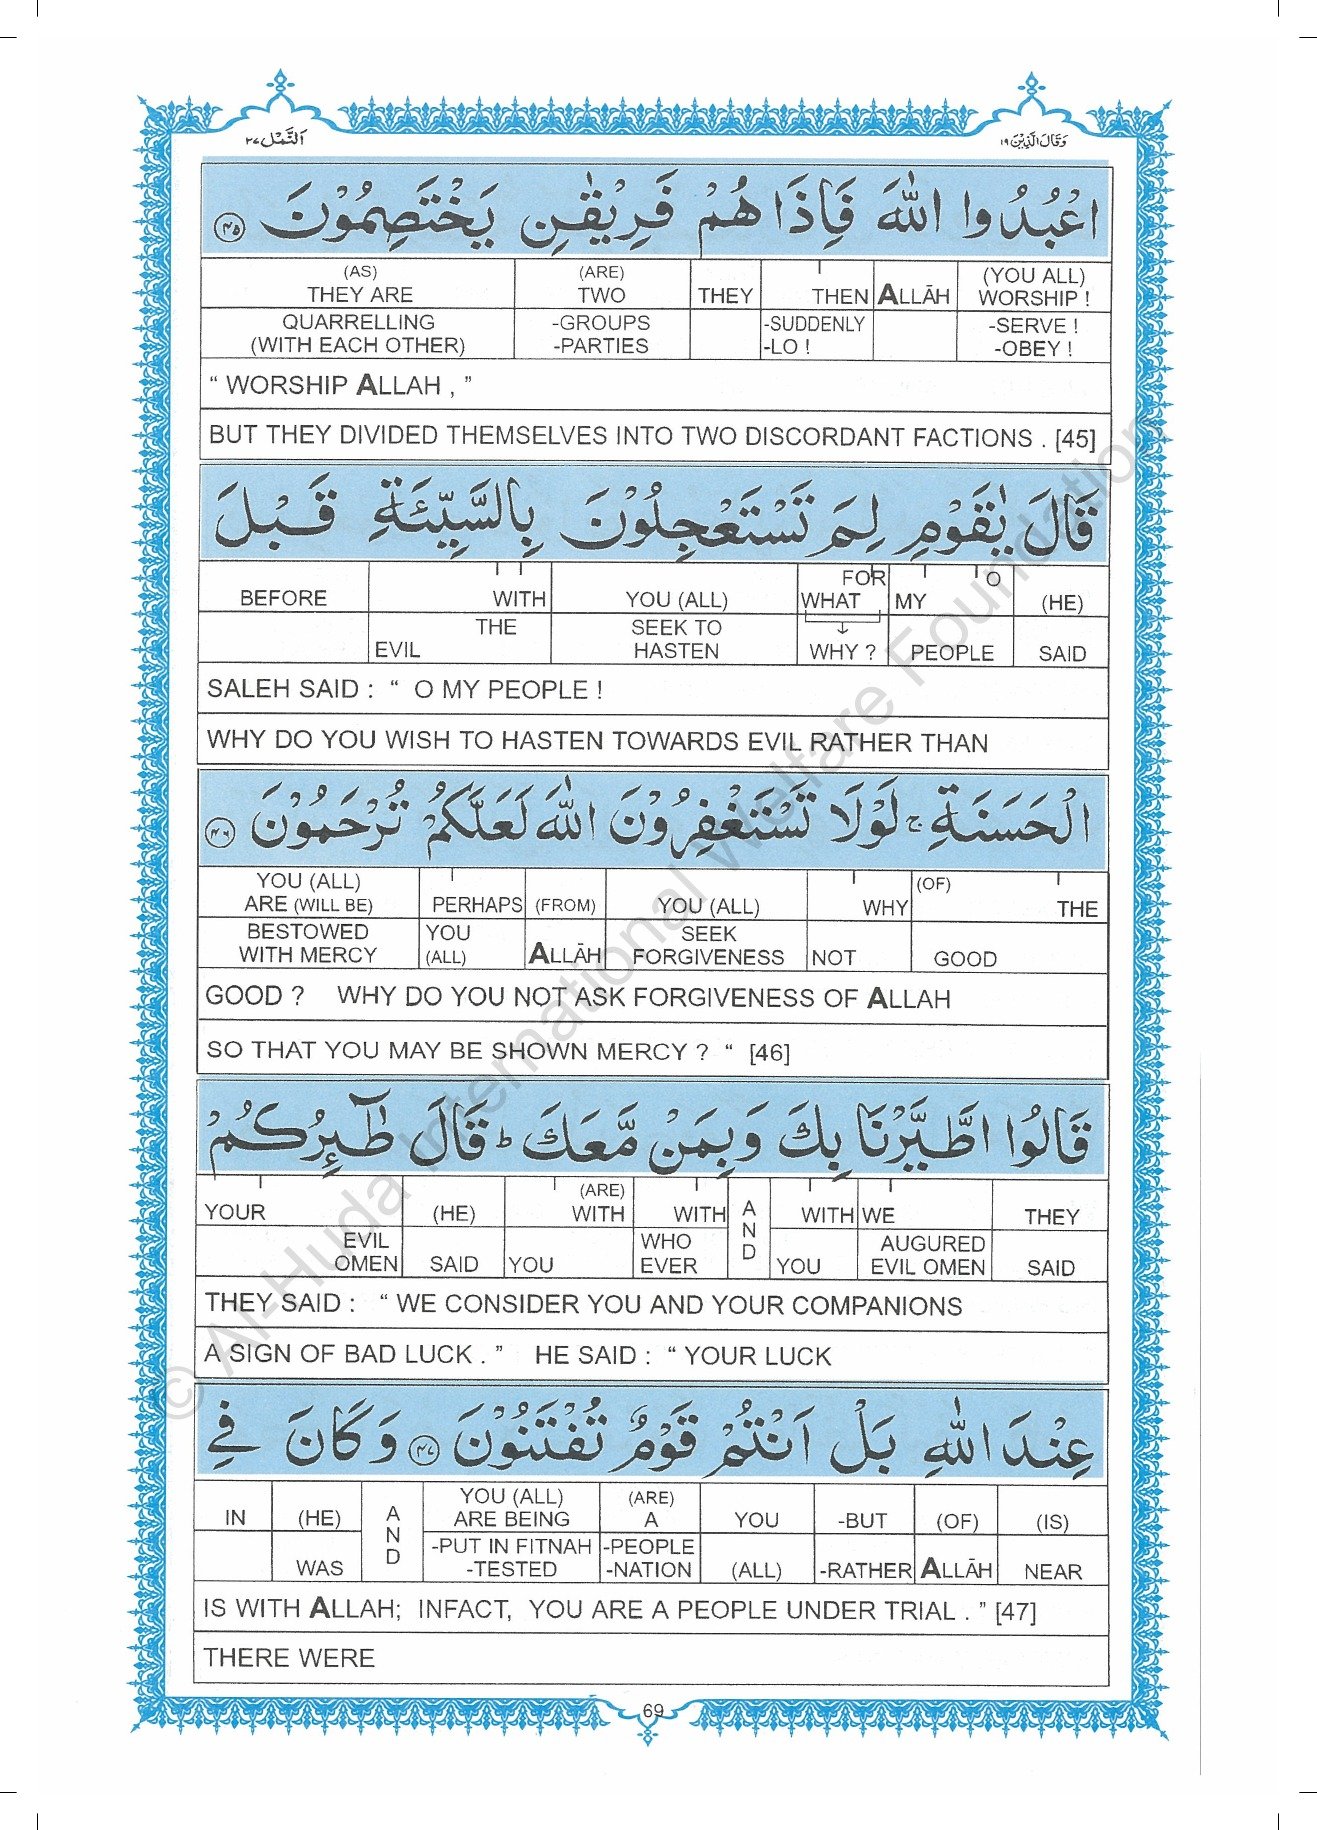 اَلنَّمْل ٢٧
وَقَالَ الَّذِيْنَ ١٩
اعْبُدُوا اللّٰهَ فَاِذَا هُمْ فَرِيْقٰنِ يَخْتَصِمُوْنَ ﴿٤٥﴾
(AS) (ARE) (YOU ALL)
THEY ARE TWO THEY THEN ALLĀH WORSHIP !
QUARRELLING -GROUPS -SUDDENLY -SERVE !
(WITH EACH OTHER) -PARTIES -LO ! -OBEY !
“ WORSHIP ALLAH , ”
BUT THEY DIVIDED THEMSELVES INTO TWO DISCORDANT FACTIONS . [45]
قَالَ يٰقَوْمِ لِمَ تَسْتَعْجِلُوْنَ بِالسَّيِّئَةِ قَبْلَ
FOR O
BEFORE WITH YOU (ALL) WHAT MY (HE)
THE SEEK TO
EVIL HASTEN WHY ? PEOPLE SAID
SALEH SAID : “ O MY PEOPLE !
WHY DO YOU WISH TO HASTEN TOWARDS EVIL RATHER THAN
الْحَسَنَةِ ۚ لَوْلَا تَسْتَغْفِرُوْنَ اللّٰهَ لَعَلَّكُمْ تُرْحَمُوْنَ ﴿٤٦﴾
YOU (ALL) (OF)
ARE (WILL BE) PERHAPS (FROM) YOU (ALL) WHY THE
BESTOWED YOU SEEK
WITH MERCY (ALL) ALLĀH FORGIVENESS NOT GOOD
GOOD ? WHY DO YOU NOT ASK FORGIVENESS OF ALLAH
SO THAT YOU MAY BE SHOWN MERCY ? “ [46]
قَالُوا اطَّيَّرْنَا بِكَ وَبِمَنْ مَّعَكَ ؕ قَالَ طٰٓئِرُكُمْ
(ARE)
YOUR (HE) WITH WITH AND WITH WE THEY
EVIL WHO AUGURED
OMEN SAID YOU EVER YOU EVIL OMEN SAID
THEY SAID : “ WE CONSIDER YOU AND YOUR COMPANIONS
A SIGN OF BAD LUCK . ” HE SAID : “ YOUR LUCK
عِنْدَ اللّٰهِ بَلْ اَنْتُمْ قَوْمٌ تُفْتَنُوْنَ ﴿٤٧﴾ وَكَانَ فِي
YOU (ALL) (ARE)
IN (HE) AND ARE BEING A YOU -BUT (OF) (IS)
-PUT IN FITNAH -PEOPLE
WAS -TESTED -NATION (ALL) -RATHER ALLĀH NEAR
IS WITH ALLAH; INFACT, YOU ARE A PEOPLE UNDER TRIAL . ” [47]
THERE WERE
69
© Al-Huda International Welfare Foundation